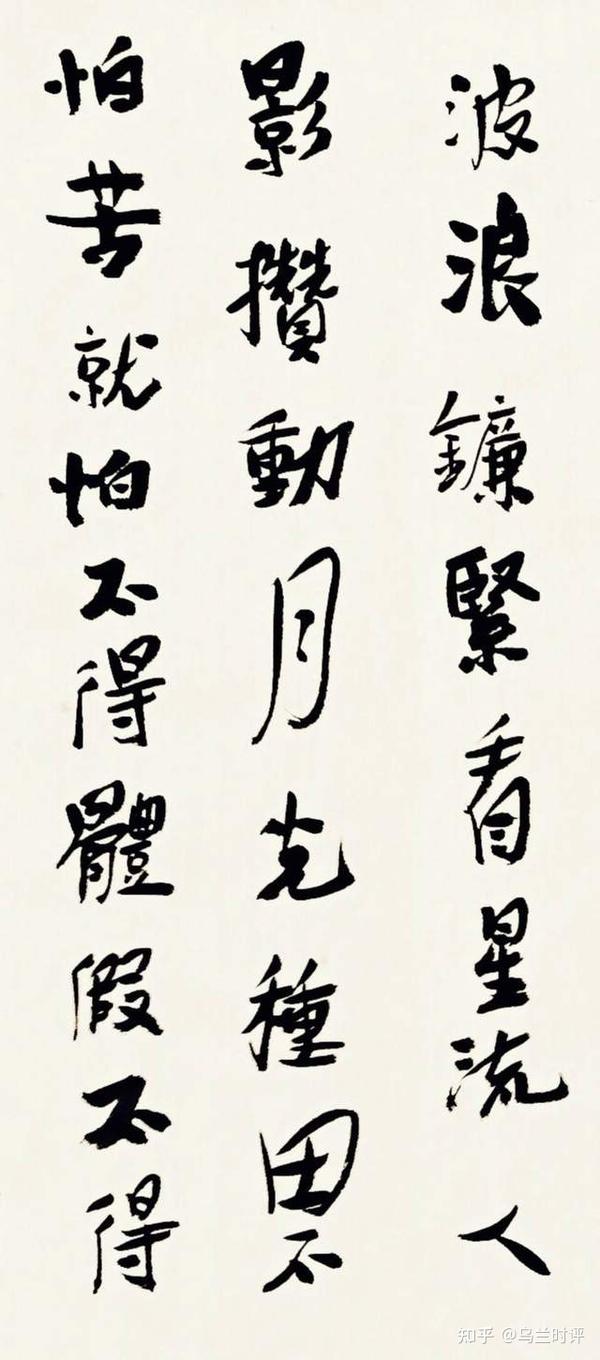 波浪鐮緊看星流人
影攢動月光種田不
怕苦就怕不得體假不得
知乎 @乌兰时评